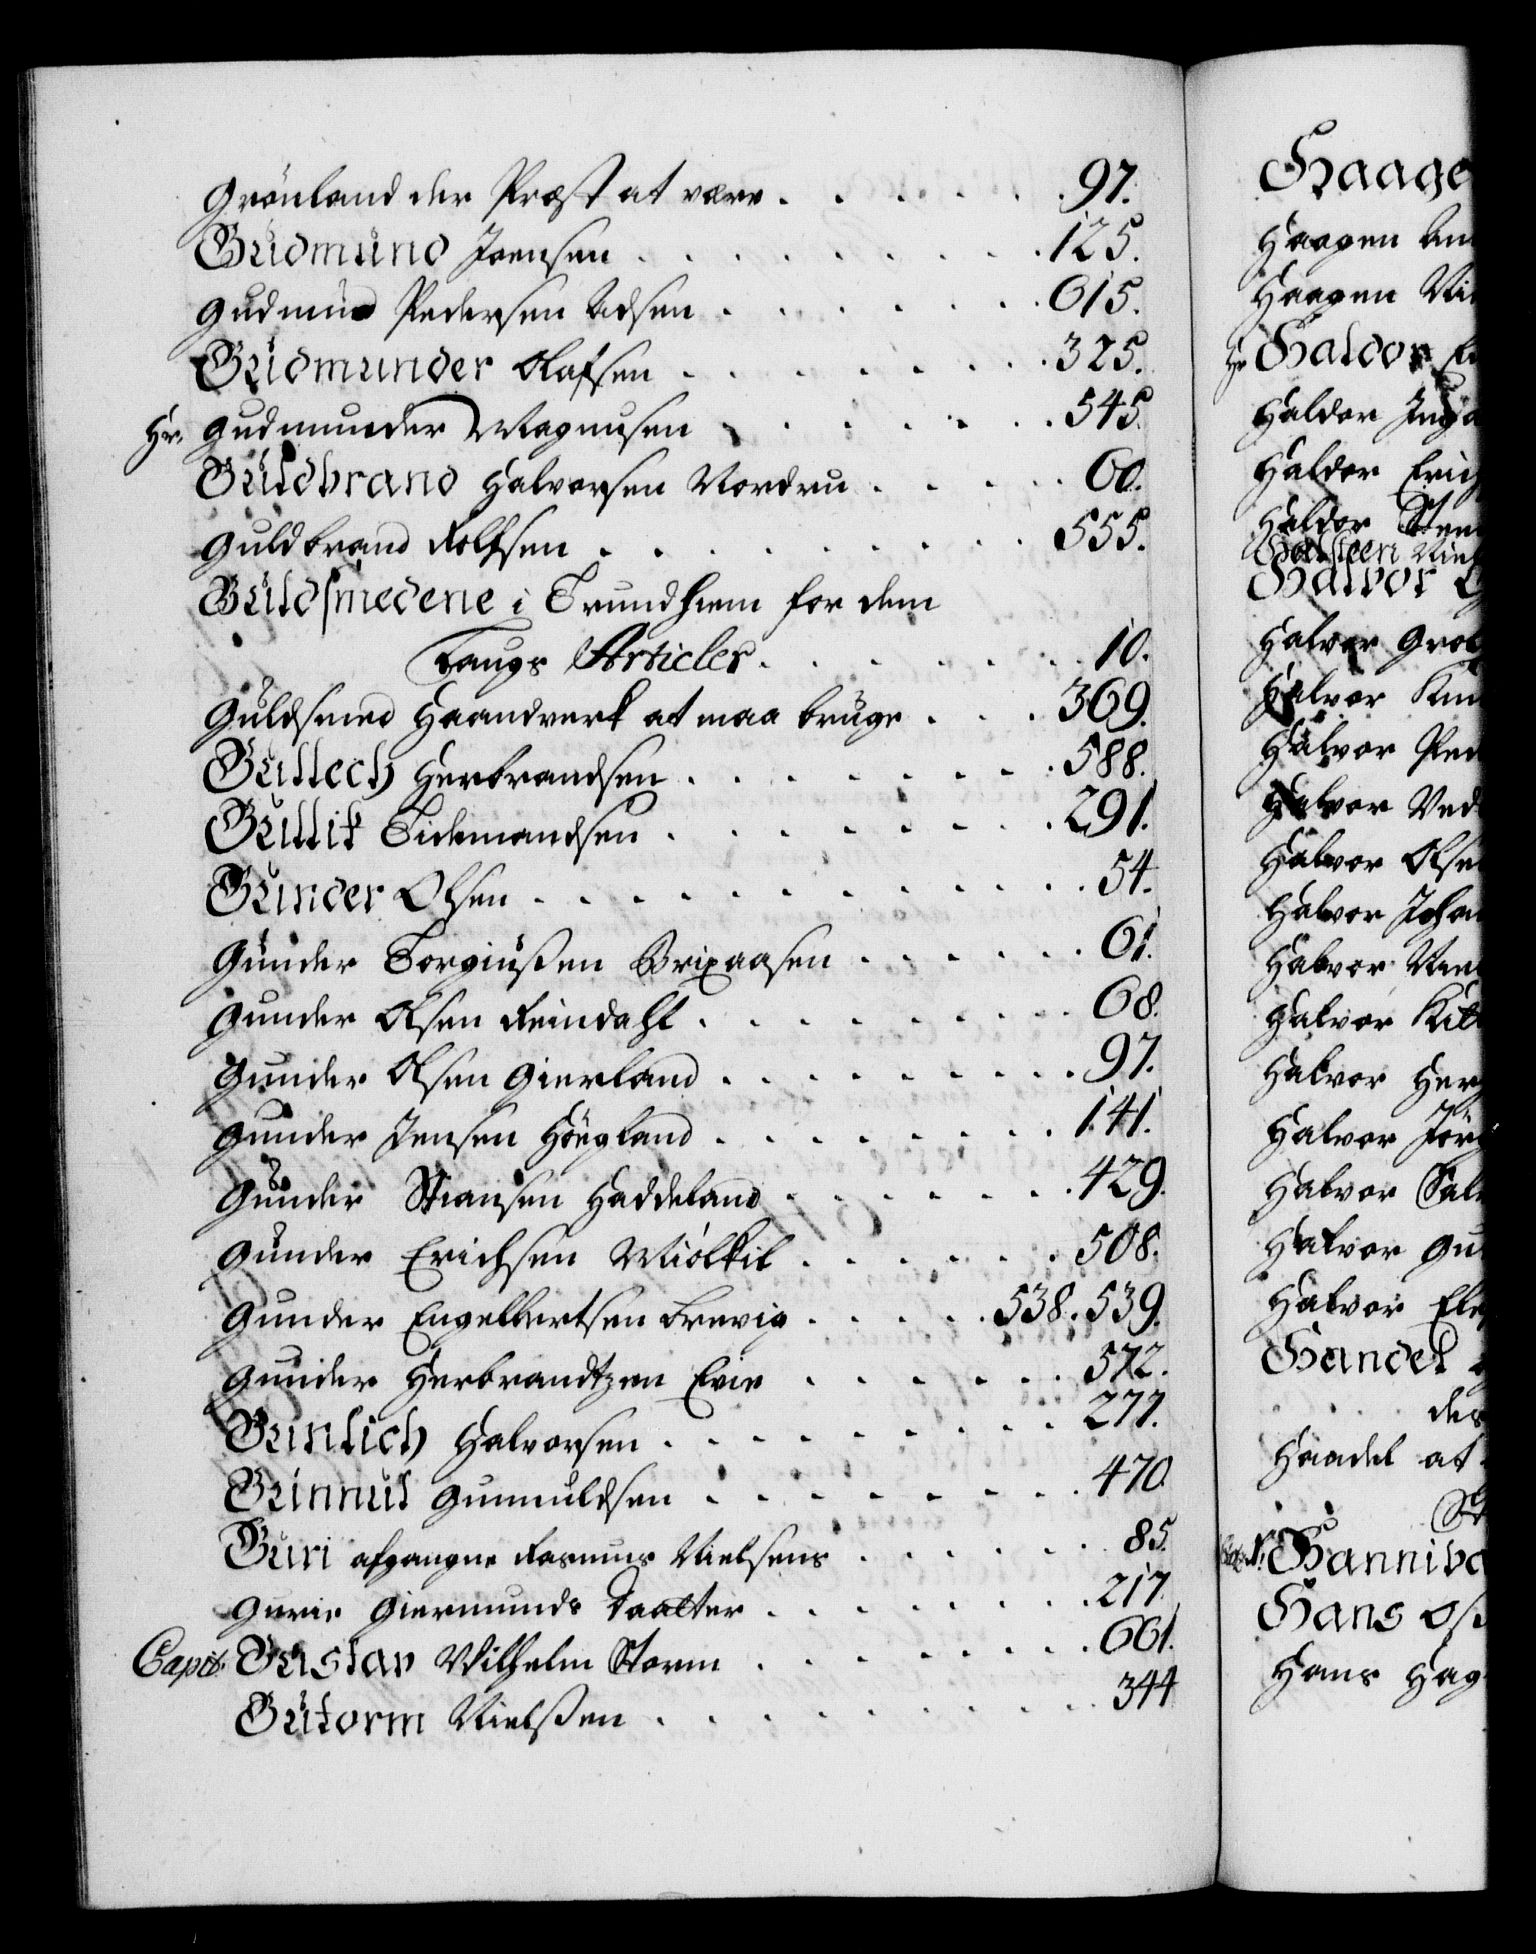 Grönland der Præst at være . . . . . . 97.
Gudmund Joensen . . . . . . . . . 125.
Gudmund Pedersen Adsen . . . . . . . 615.
Gudmunder Olafsen . . . . . . . . 325.
Hr. Gudmunder Magnusen . . . . . . . 545.
Guldbrand Halvorsen Nordru . . . . . 60.
Guldbrand Rolfsen . . . . . . . . . 555.
Guldsmedene i Trundhiem for dem
Laugs Articler . . . . . . . . 10.
Guldsmed Haandverk at maa bruge . . . 369.
Gullech Herbrandsen . . . . . . . . 588.
Gullik Tidemandsen . . . . . . . . . 291.
Gunder Olsen . . . . . . . . . . . . 54.
Gunder Torgiusßen Brixaasen . . . . . . 61.
Gunder Olsen Reindahl . . . . . . . . . 68.
Gunder Olsen Gierland . . . . . . . . . 97.
Gunder Jensen Höegland . . . . . . . . 141.
Gunder Stiansen Haddeland . . . . . . . 429.
Gunder Erichsen Miölkil . . . . . . . 508.
Gunder Engelbertsen Brevig . . . . . 538. 539.
Gunder Herbrandtzen Evie . . . . . . 572.
Gunlich Halvorsen . . . . . . . . . 277.
Gunnul Gunnuldsen . . . . . . . . . 470.
Guri afgangne Rasmus Nielsens . . . . . . 85.
Gurie Giermunds Daatter . . . . . . . . 217.
Capit: Gustav Wilhelm Storm . . . . . . . . 661.
Gutorm Nielsßen . . . . . . . . . . 344
Haage
Haagen
Haagen
Hr Haldor
Haldor
Haldor Erich
Haldor Sten
Halsteen Niel
Halvor
Halvor
Halvor Knu
Halvor Ped
Halvor Ved
Halvor Olse
Halvor Johan
Halvor
Halvor Kitt
Halvor Her
Halvor Jör
Halvor
Halvor Gu
Halvor
Handel
des
Haadel at
Hanniba
Hans
Hans Hag